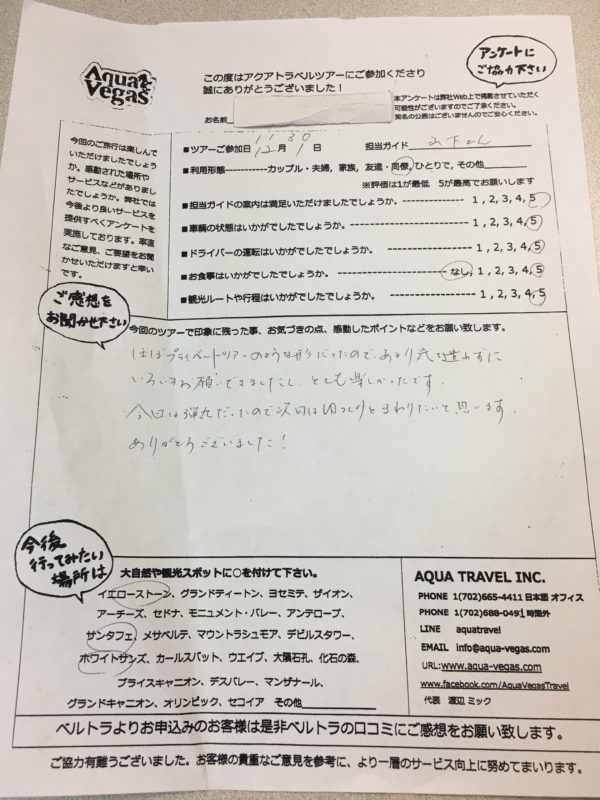 Aqua Vegas
この度はアクアトラベルツアーにご参加くださり
誠にありがとうございました！
アンケートに
ご協力下さい
お名前
本アンケートは弊社Web上で掲載させていただく
可能性がございますのでご了承ください。
実名の公表はございませんのでご安心ください。
今回のご旅行は楽しんで
いただけましたでしょう
か。感動された場所や
サービスなどがありまし
たでしょうか。弊社では
今後より良いサービスを
提供すべくアンケートを
実施しております。率直
なご意見、ご要望をお聞
かせいただけますと幸い
です。
■ツアーご参加日 月 日 担当ガイド
11 30
12 1
■利用形態------------カップル・夫婦, 家族, 友達・同僚, ひとりで, その他
※評価は1が最低 5が最高でお願いします
■担当ガイドの案内は満足いただけましたでしょうか。 1 , 2, 3, 4, 5
■車輌の状態はいかがでしたでしょうか。 1 , 2, 3, 4, 5
■ドライバーの運転はいかがでしたでしょうか。 1 , 2, 3, 4, 5
■お食事はいかがでしたでしょうか。 なし, 1, 2, 3, 4, 5
■観光ルートや行程はいかがでしたでしょうか。 1 , 2, 3, 4, 5
ご感想を
お聞かせ下さい
今回のツアーで印象に残った事、お気づきの点、感動したポイントなどをお願い致します。
ほぼプライベートツアーのような形だったので、あまり気を遣わずに
いろいろお願いできましたし、とても楽しかったです。
今回は弾丸だったので次回はゆっくりとまわりたいと思います。
ありがとうございました！
今後
行ってみたい
場所は
大自然や観光スポットに○を付けて下さい。
イエローストーン、グランドティートン、ヨセミテ、ザイオン、
アーチーズ、セドナ、モニュメント・バレー、アンテロープ、
サンタフェ、メサベルテ、マウントラシュモア、デビルスタワー、
ホワイトサンズ、カールスバット、ウエイブ、大隕石孔、化石の森、
ブライスキャニオン、デスバレー、マンザナール、
グランドキャニオン、オリンピック、セコイア その他
AQUA TRAVEL INC.
PHONE 1(702)665-4411 日本語 オフィス
PHONE 1(702)688-0491 時間外
LINE aquatravel
EMAIL info@aqua-vegas.com
URL:www.aqua-vegas.com
www.facebook.com/AquaVegasTravel
代表 渡辺 ミック
ベルトラよりお申込みのお客様は是非ベルトラの口コミにご感想をお願い致します。
ご協力有難うございました。お客様の貴重なご意見を参考に、より一層のサービス向上に努めてまいります。